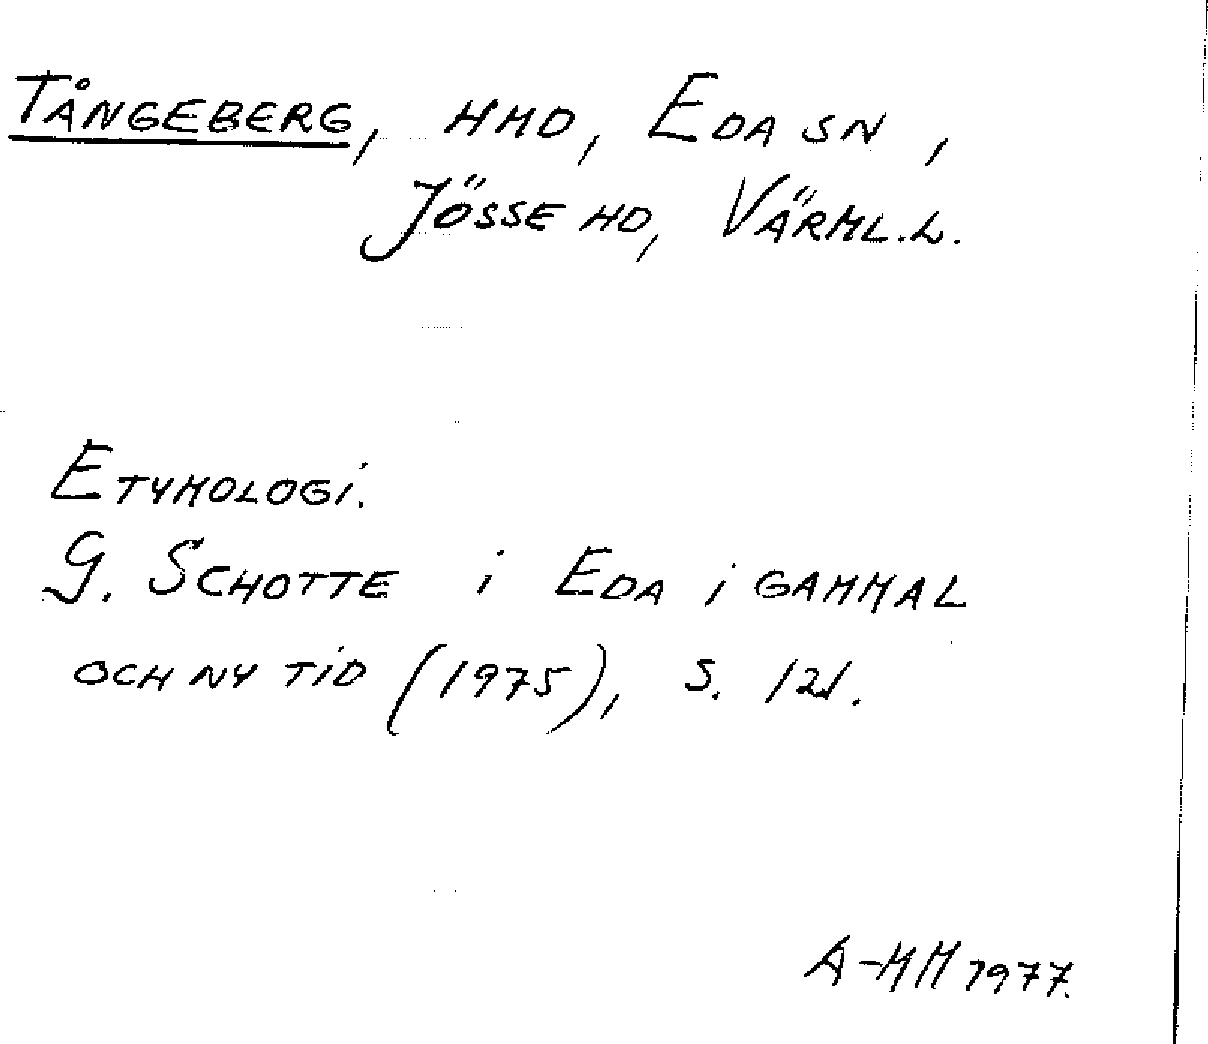 TÅNGEBERG, HMD, EDA SN,
JÖSSE HD, VÄRML.L.
ETYMOLOGI.
G. SCHOTTE i EDA i GAMMAL
OCH NY TiD (1975), S. 121.
A-MM 1977.